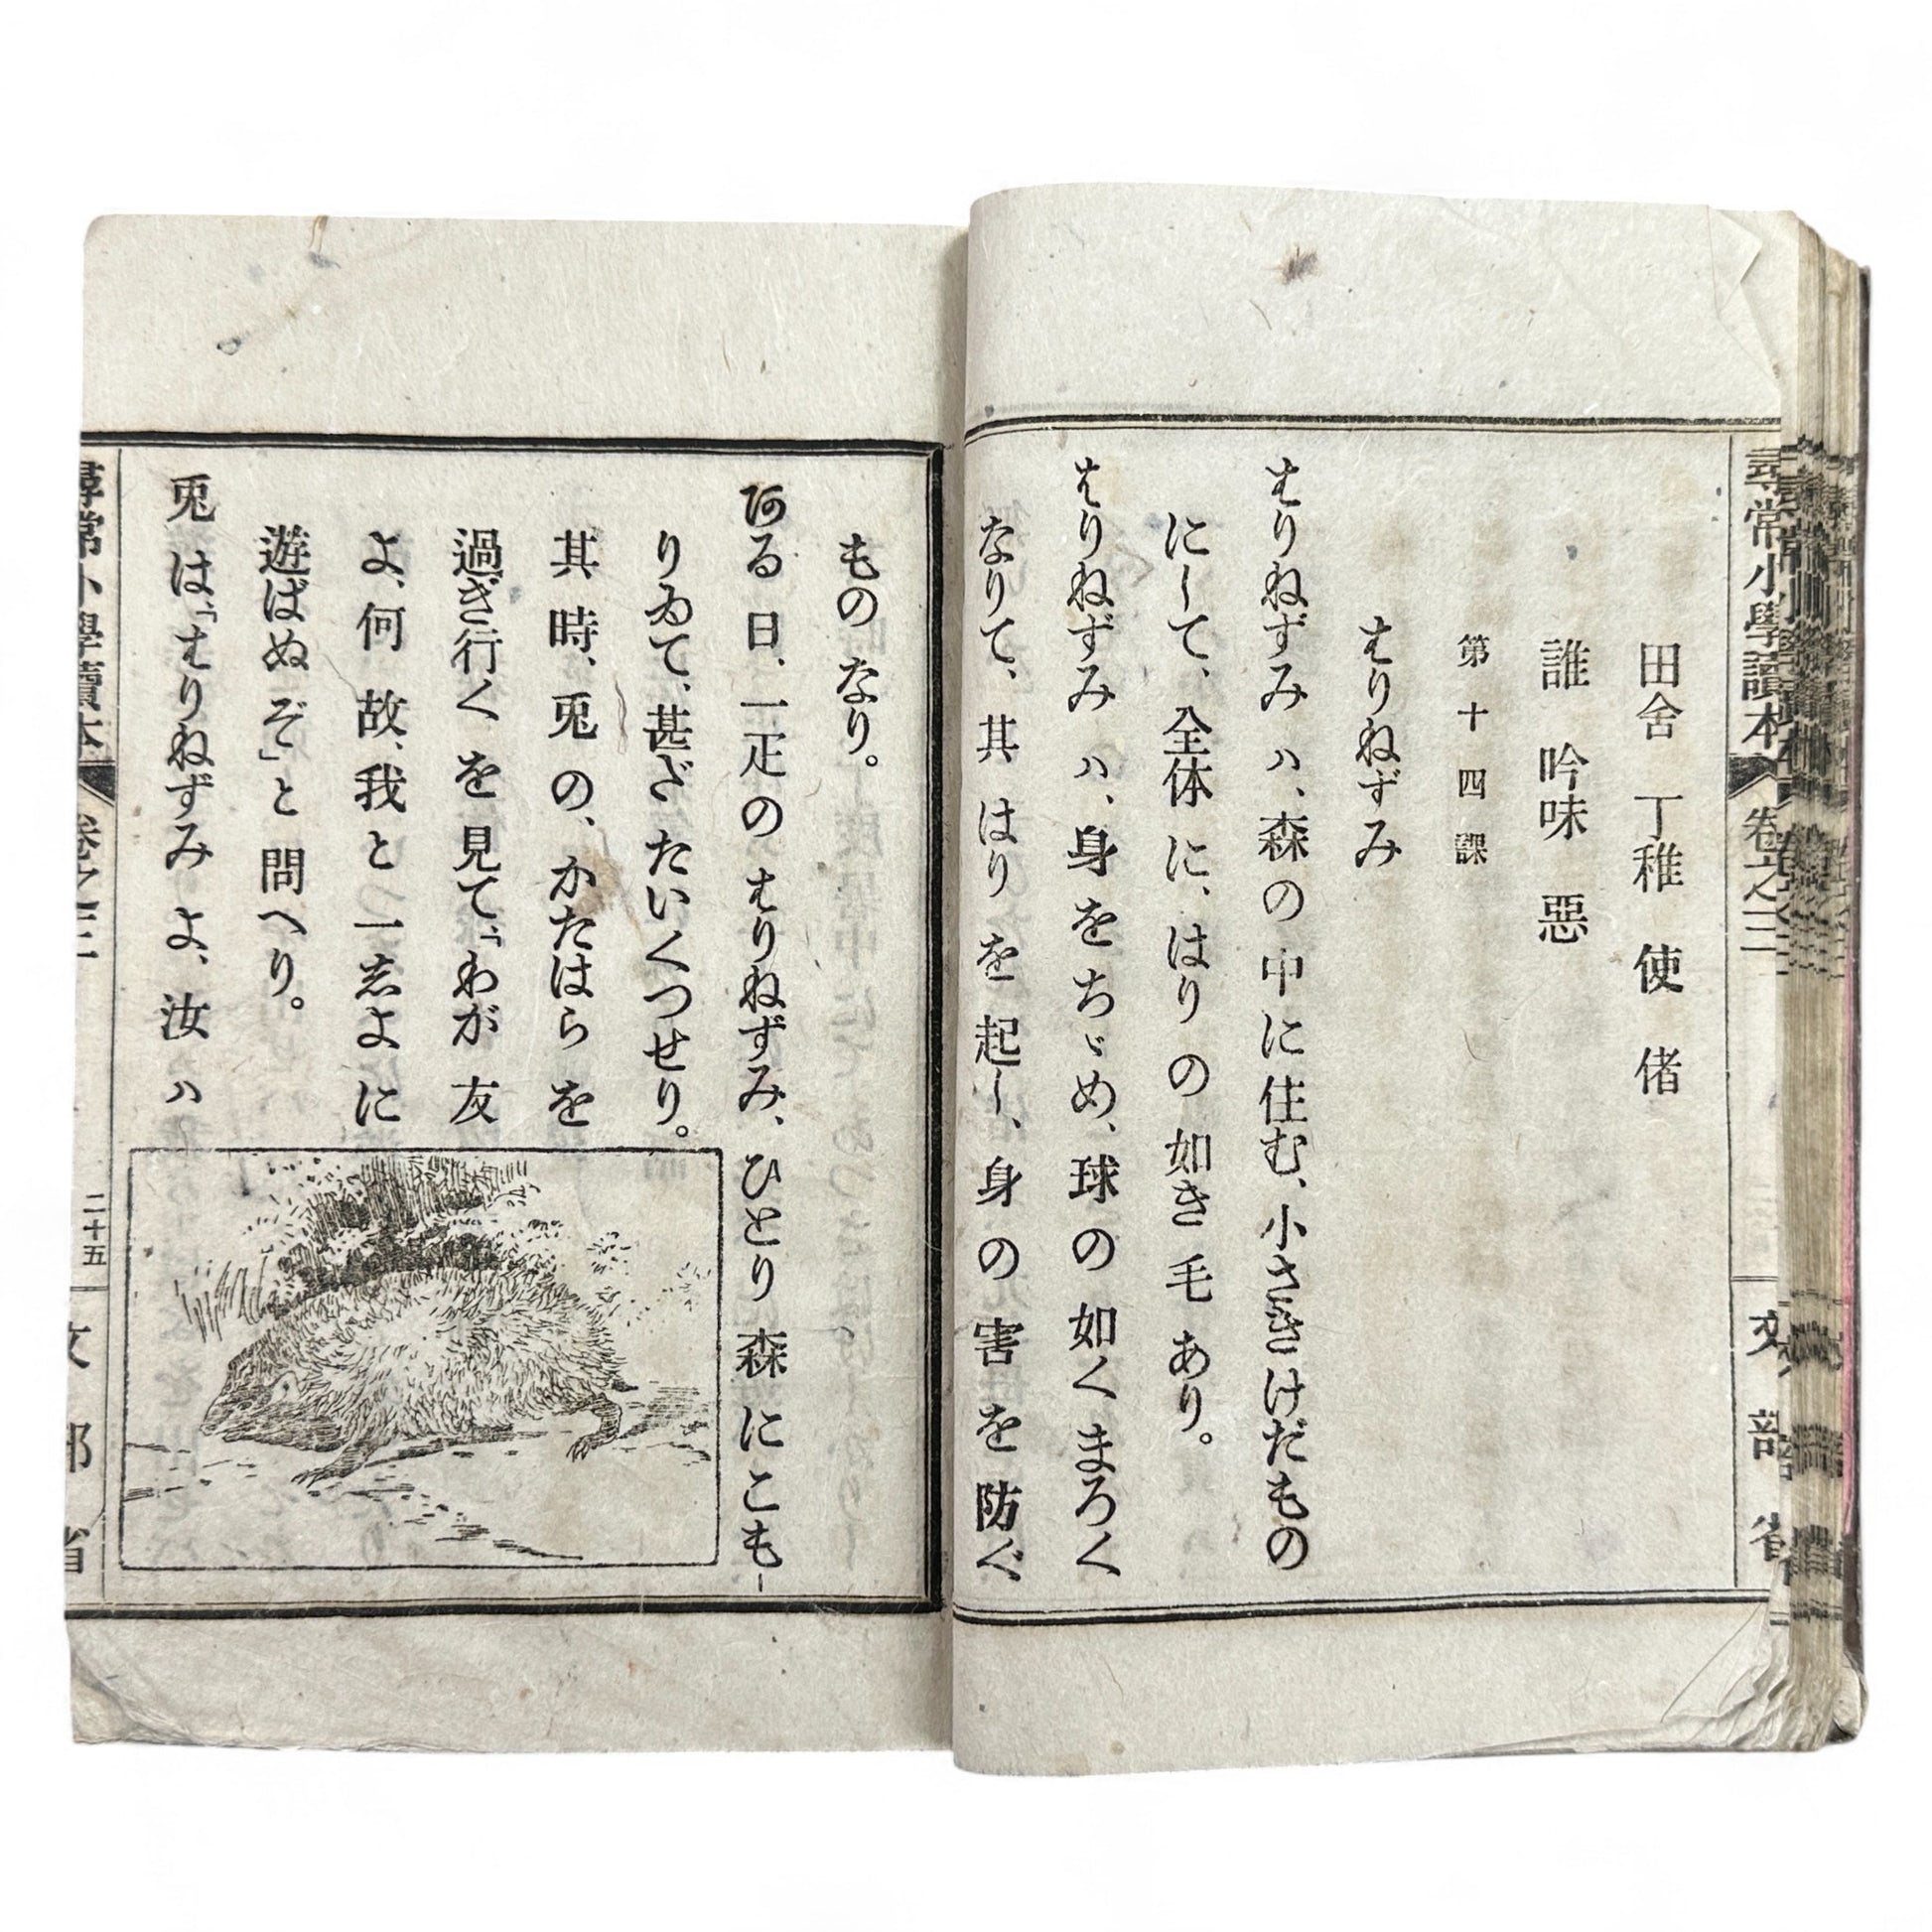 尋常小學讀本 卷之三 文部省
田舍 丁稚 使 偖
誰 吟味 惡
第十四課
はりねずみ
はりねずみ ハ、森の中に住む、小さきけだもの
にして、全体に、はりの如き毛あり。
はりねずみ ハ、身をちゞめ、球の如くまろく
なりて、其はりを起し、身の害を防ぐ
ものなり。
ある日、一疋のはりねずみ、ひとり森にこも
りゐて、甚ざたいくつせり。
其時、兎の、かたはらを
過ぎ行くを見て、「わが友
よ、何故、我と一志よに
遊ばぬぞ」と問へり。
兎は、「はりねずみよ、汝ハ
尋常小學讀本 卷之三 二十五 文部省